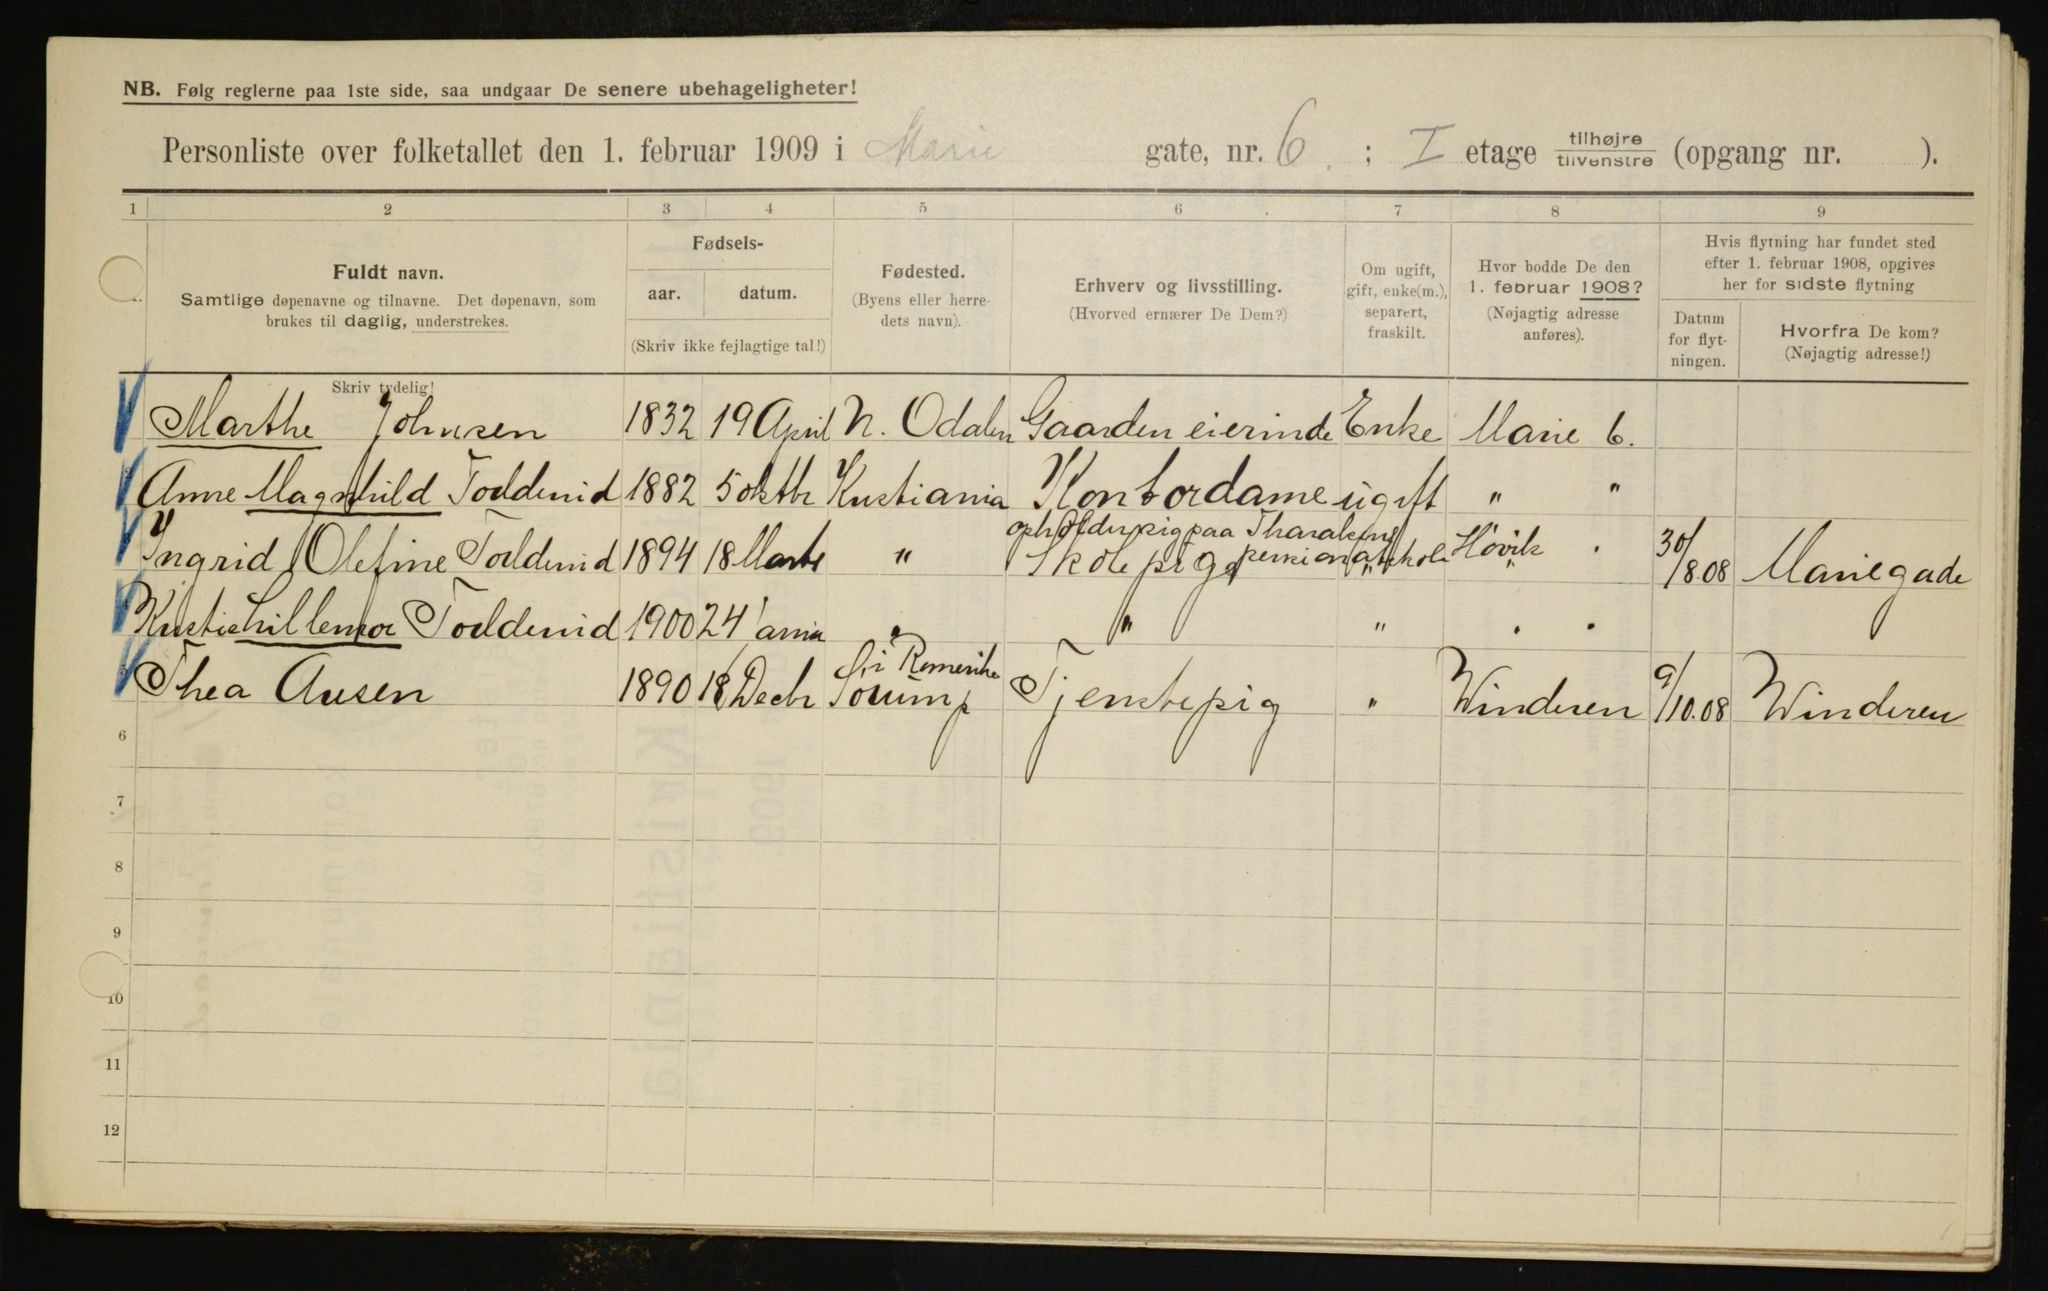 NB. Følg reglerne paa 1ste side, saa undgaar De senere ubehageligheter!
Personliste over folketallet den 1. februar 1909 i Marie gate, nr. 6. ; I etage tilhøjre tilvenstre (opgang nr. ).
1 2 3 4 5 6 7 8 9
Fuldt navn.
Samtlige døpenavne og tilnavne. Det døpenavn, som
brukes til daglig, understrekes.
Skriv tydelig!
Fødsels-
aar. datum.
(Skriv ikke fejlagtige tal!)
Fødested.
(Byens eller herre-
dets navn).
Erhverv og livsstilling.
(Hvorved ernærer De Dem?)
Om ugift,
gift, enke(m.),
separert,
fraskilt.
Hvor bodde De den
1. februar 1908?
(Nøjagtig adresse
anføres).
Hvis flytning har fundet sted
efter 1. februar 1908, opgives
her for sidste flytning
Datum
for flyt-
ningen.
Hvorfra De kom?
(Nøjagtig adresse!)
Marthe Johnsen 1832 19 April N. Odalen Gaarden eierinde Enke Marie 6.
Anne Magnhild Toddenid 1882 5 oktbr Kristiania Kontordame ugift " "
Ingrid Olefine Toddenid 1894 18 Marts " Skolepige " Høvik " 30/8.08 Mariegade
Lillemor Toddenid 1900 24 " "
Thea Ausen 1890 18 Decbr Sørum i Romerike Tjenstepig " Winderen 9/10.08 Winderen
6
7
8
9
10
11
12